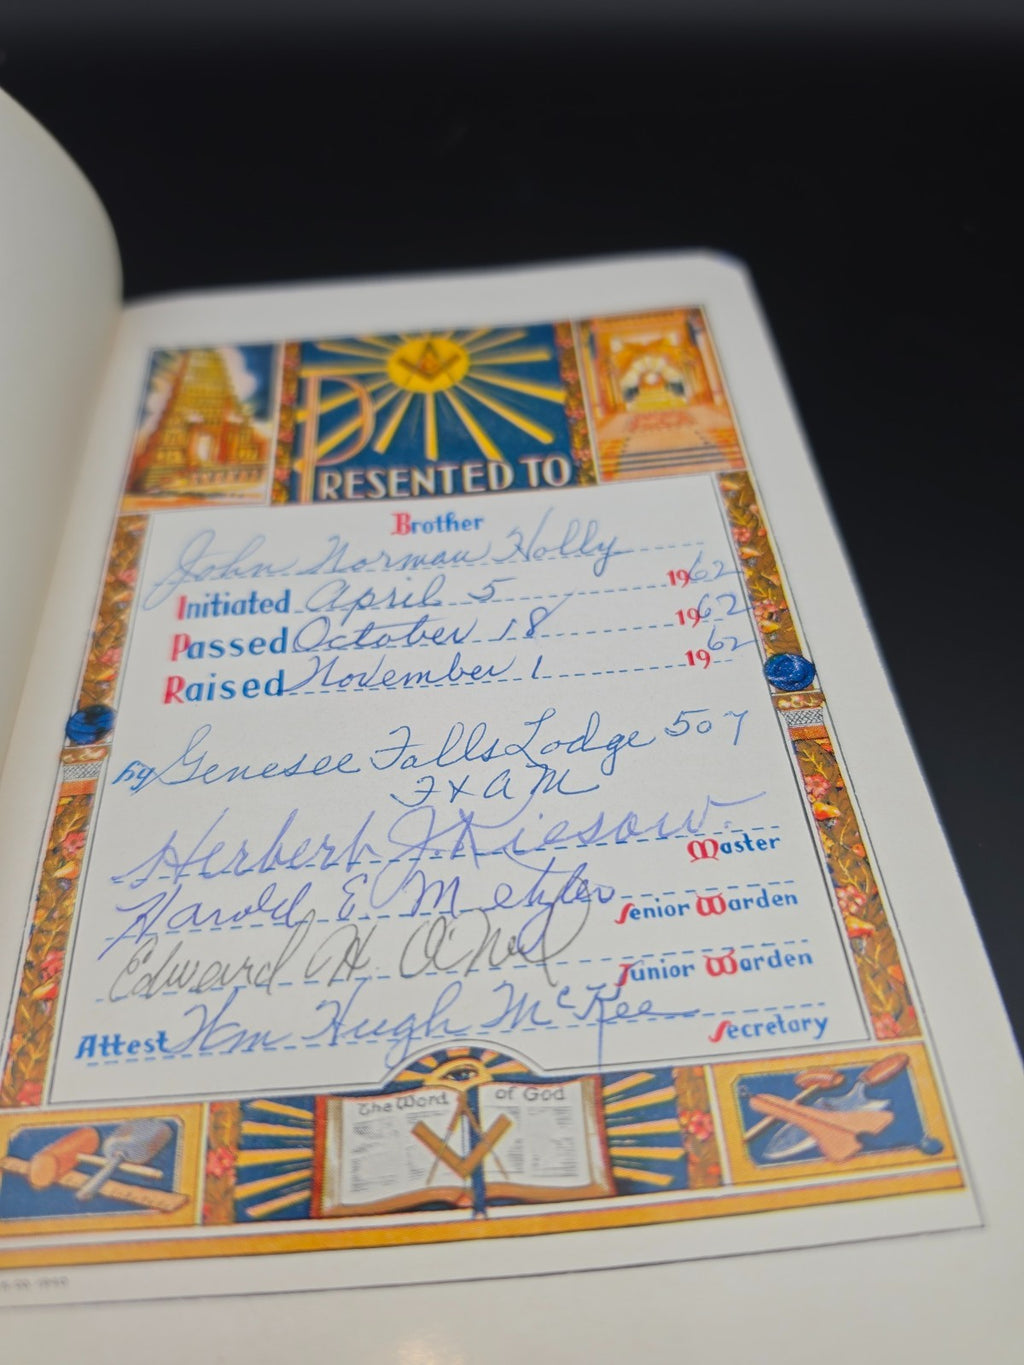 PRESENTED TO
Brother
John Norman Holly
Initiated April 5 1962
Passed October 18 1962
Raised November 1 1962
by Genesee Falls Lodge 507
F & A M
Herbert J. Kiesow
Master
Harold E Metzler
Senior Warden
Edward H. O'Neil
Junior Warden
Attest Wm Hugh McKee
Secretary
The Word of God